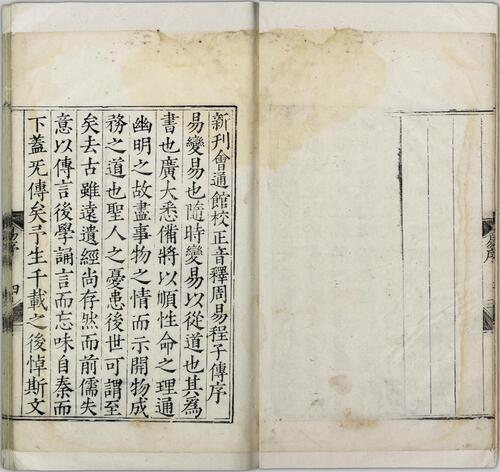 新刊會通館校正音釋周易程子傳序
易變易也隨時變易以從道也其為
書也廣大悉備將以順性命之理通
幽明之故盡事物之情而示開物成
務之道也聖人之憂患後世可謂至
矣去古雖遠遺經尚存然而前儒失
意以傳言後學誦言而忘味自秦而
下蓋无傳矣予生千載之後悼斯文
易序
四
易序